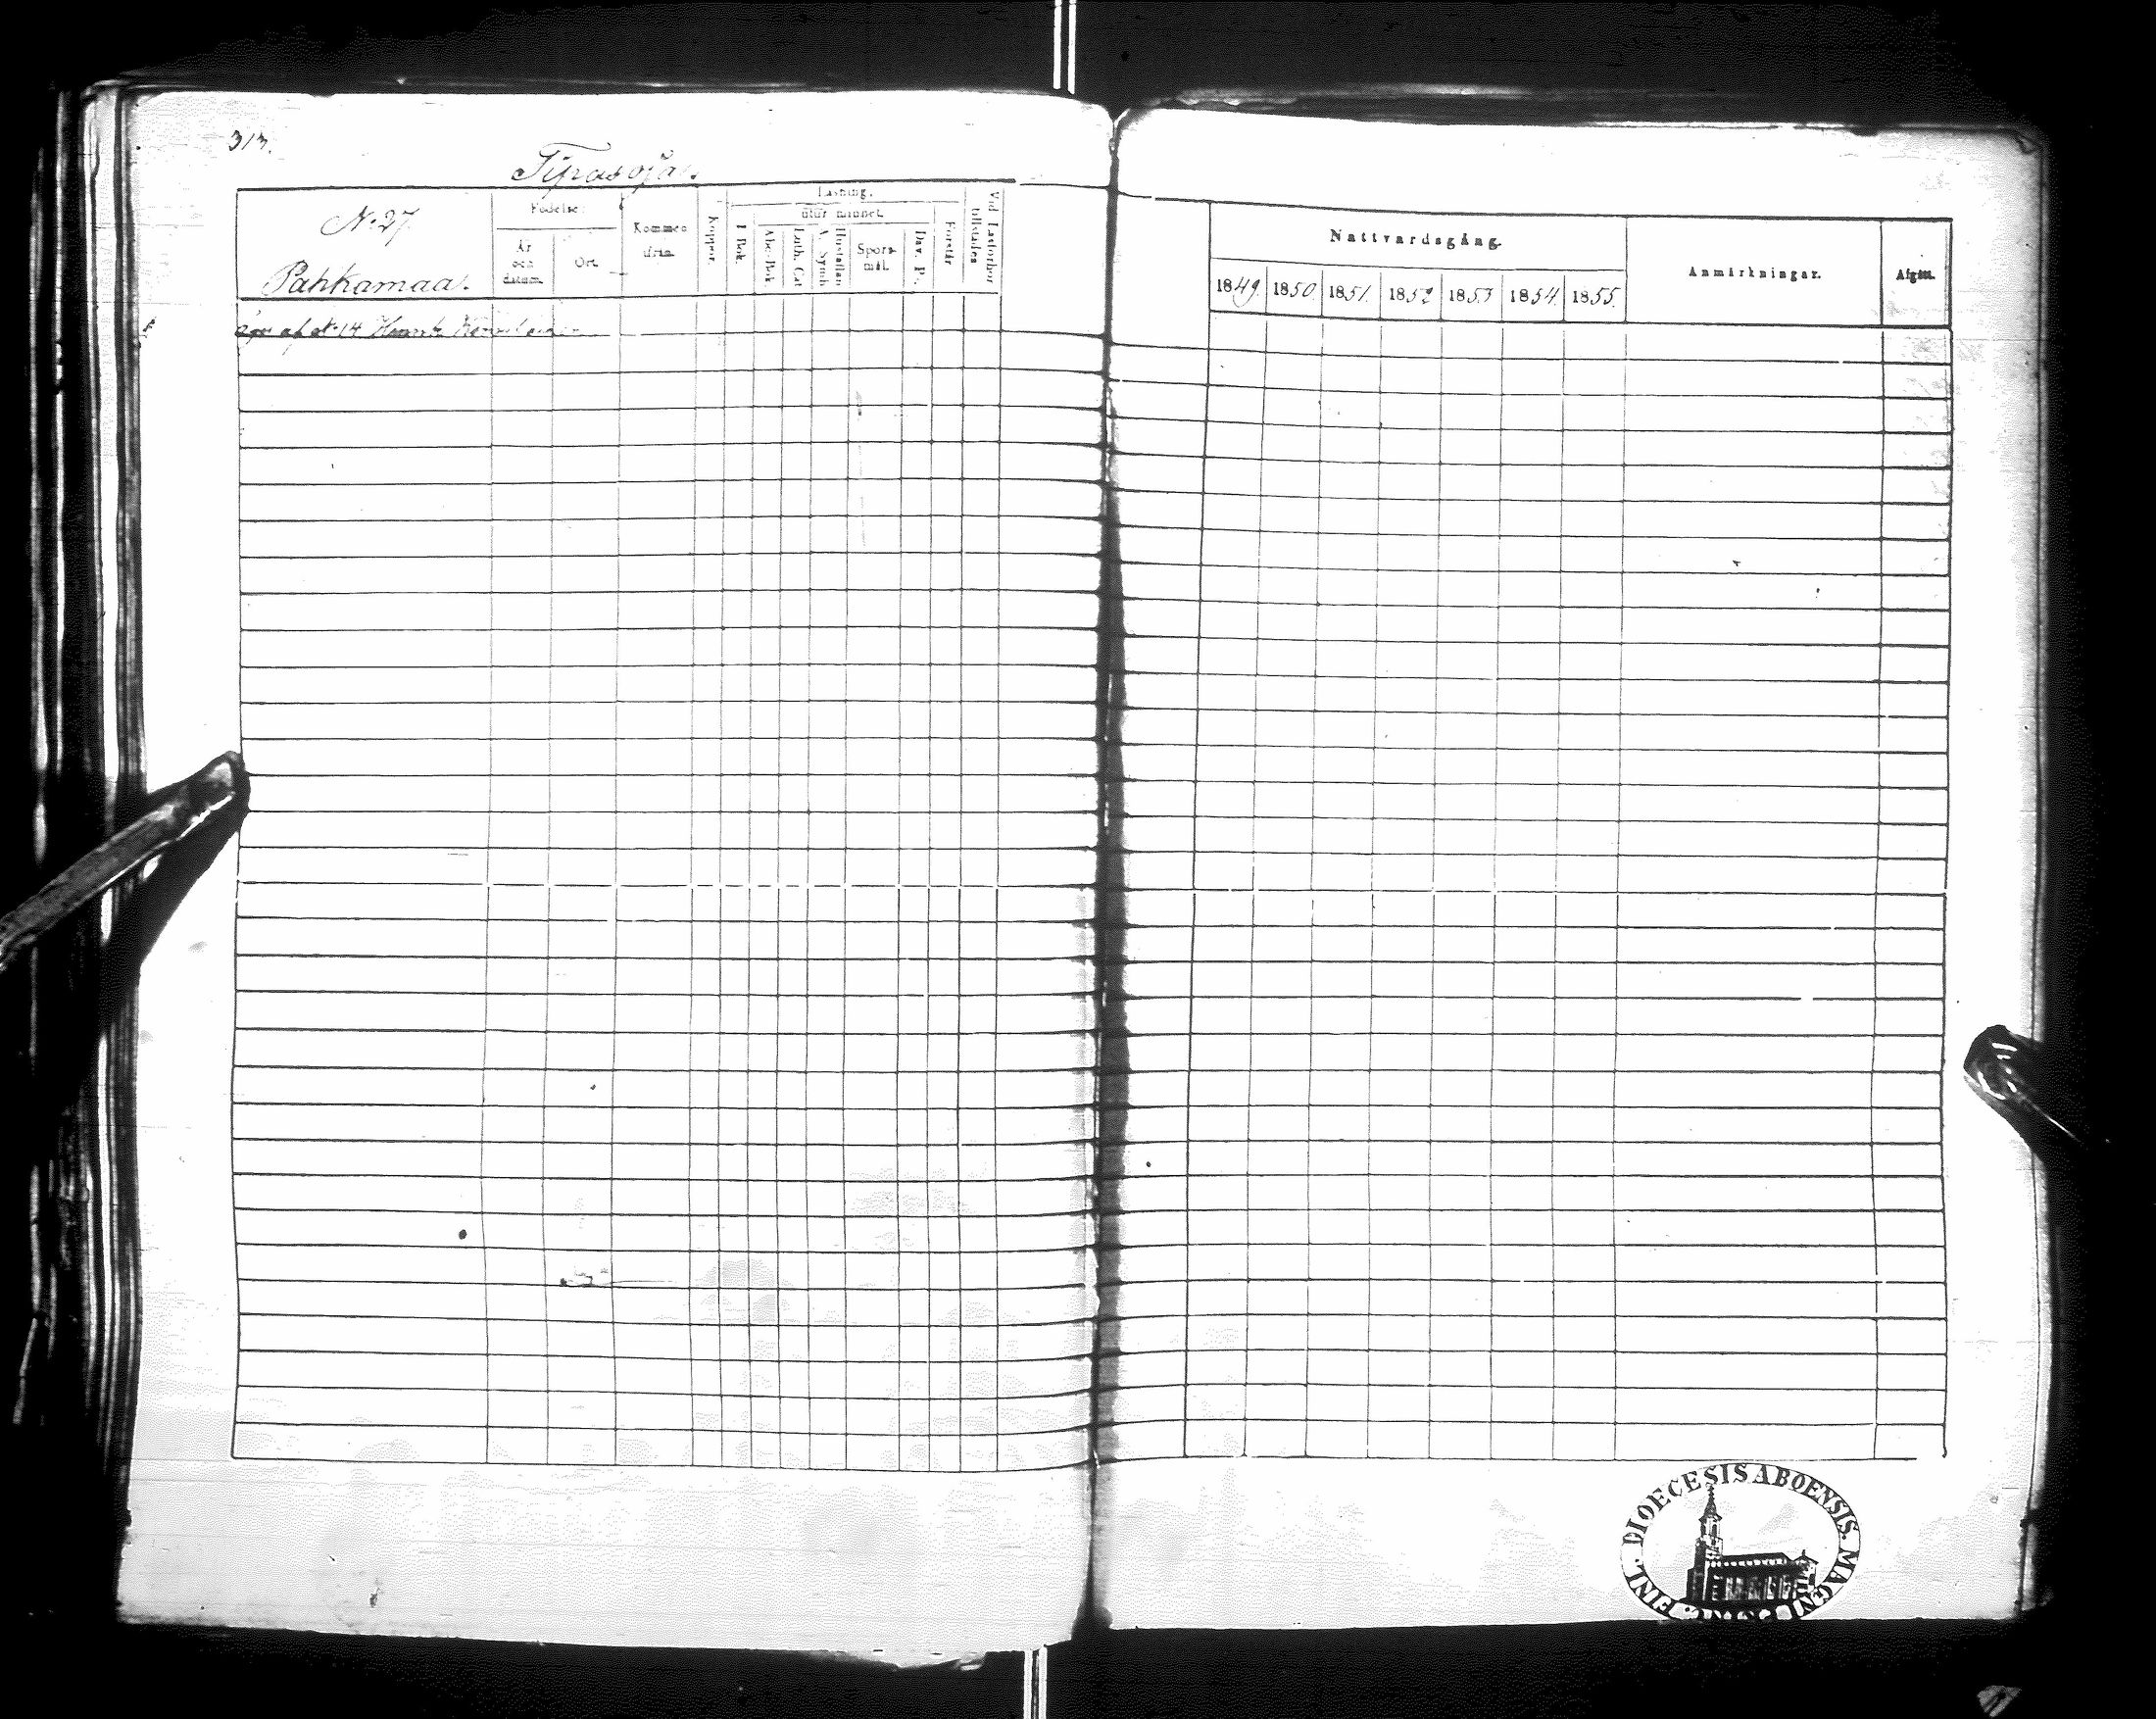 313.
Tipasoja.
N:o 27.
Pahkamaa.
Födelse:
År och datum.
Ort.
Kommen ifrån.
Koppor.
Läsning.
utur minnet.
I Bok.
Abc-Bok
Luth. Cat
A. Symb
Hustaflan
Sporsmål.
Dav. Ps.
Förstår
Vid Läsförhör tillstädes
äges af N:o 14 Henrik
Nattvardsgång.
1849.
1850.
1851.
1852
1853
1854.
1855.
Anmärkningar.
Afgått.
DIOECESIS ABOENSIS. MAGNI